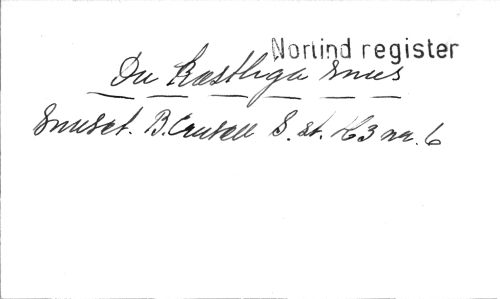 Norlind register
Du kostliga snus
Snuset. B. Crusell S. st. H3 nr. 6